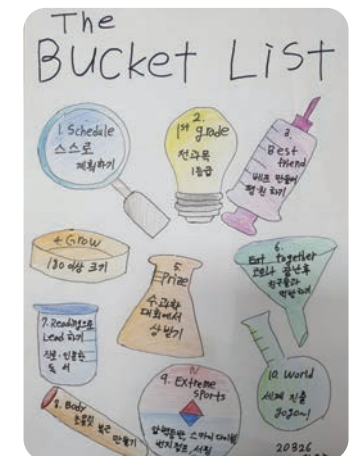 The
Bucket List
1. Schedule
스스로
계획하기
2.
1st grade
전과목
1등급
3.
Best
friend
베프 만들어
평생 하기
4. Grow
180 이상 크기
5.
Prize
수,과학
대회에서
상 받기
6.
Eat together
코로나 끝난후
친구들과
7. Reading으로
Lead 하기
진로·인문학
독서
8. Body
초콜릿 복근
만들기
9. Extreme
Sports
암벽등반, 스카이다이빙
번지점프, 서핑
10. World
세계 진출
gogo~!
20326